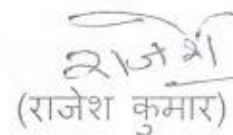 राजेश
(राजेश कुमार)